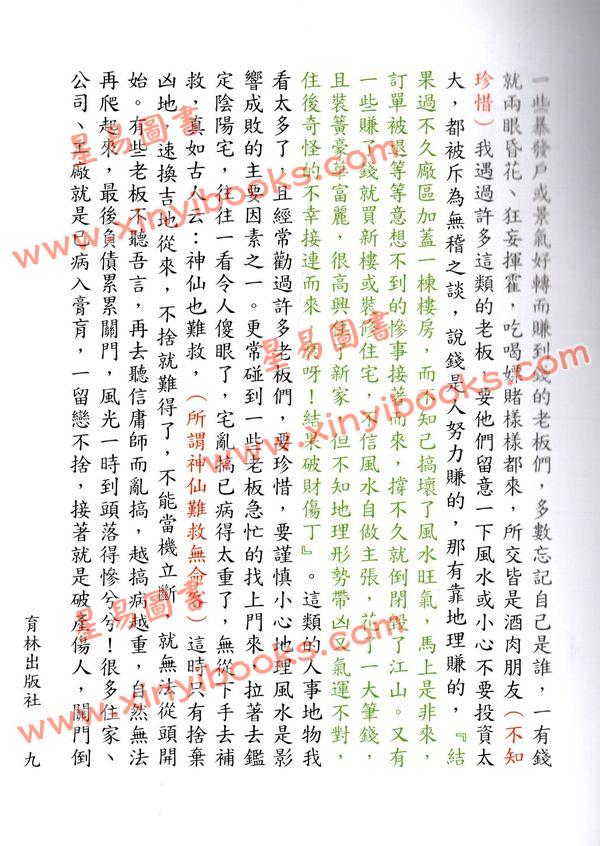 一些暴發戶或景氣好轉而賺到錢的老板們，多數忘記自己是誰，一有錢
就兩眼昏花、狂妄揮霍，吃喝嫖賭樣樣都來，所交皆是酒肉朋友（不知
珍惜）我遇過許多這類的老板，要他們留意一下風水或小心不要投資太
大，都被斥為無稽之談，說錢是人努力賺的，那有靠地理賺的，『結
果過不久廠區加蓋一棟樓房，而不知己搞壞了風水旺氣，馬上是非來，
訂單被退等等意想不到的慘事接著而來，撐不久就倒閉毀了江山。又有
一些賺了錢就買新樓或裝修住宅，不信風水自做主張，花了一大筆錢，
且裝簧豪華富麗，很高興住了新家，但不知地理形勢帶凶又氣運不對，
住後奇怪的不幸接連而來，勿呀！結果破財傷丁』。這類的人事地物我
看太多了，且經常勸過許多老板們，要珍惜，要謹慎小心地理風水是影
響成敗的主要因素之一。更常碰到一些老板急忙的找上門來，拉著去鑑
定陰陽宅，往往一看令人傻眼了，宅亂搞已病得太重了，無從下手去補
救，真如古人云：神仙也難救，（所謂神仙難救無命客）這時只有捨棄
凶地，速換吉地從來，不捨就難得了，不能當機立斷，就無法從頭開
始。有些老板不聽吾言，再去聽信庸師而亂搞，越搞病越重，自然無法
再爬起來，最後負債累累關門，風光一時到頭落得慘兮兮！很多住家、
公司、工廠就是已病入膏肓，一留戀不捨，接著就是破產傷人，關門倒
育林出版社　九
星易圖書
www.xinyibooks.com
星易圖書
www.xinyibooks.com
星易圖書
www.xinyibooks.com
星易圖書
www.xinyibooks.com